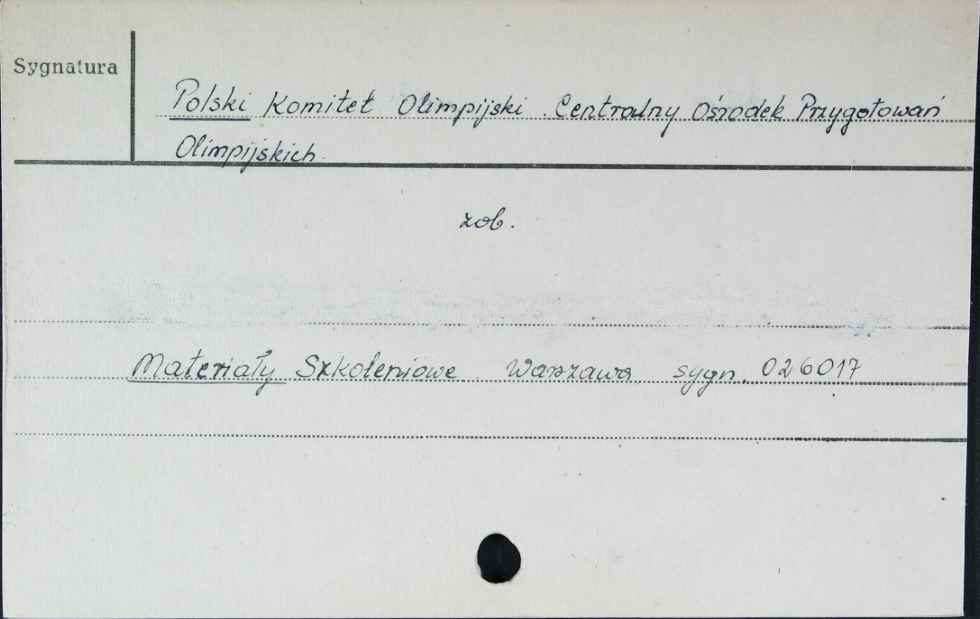 Sygnatura
Polski Komitet Olimpijski. Centralny Ośrodek Przygotowań
Olimpijskich.
zob.
Materiały Szkoleniowe. Warszawa sygn. 026017